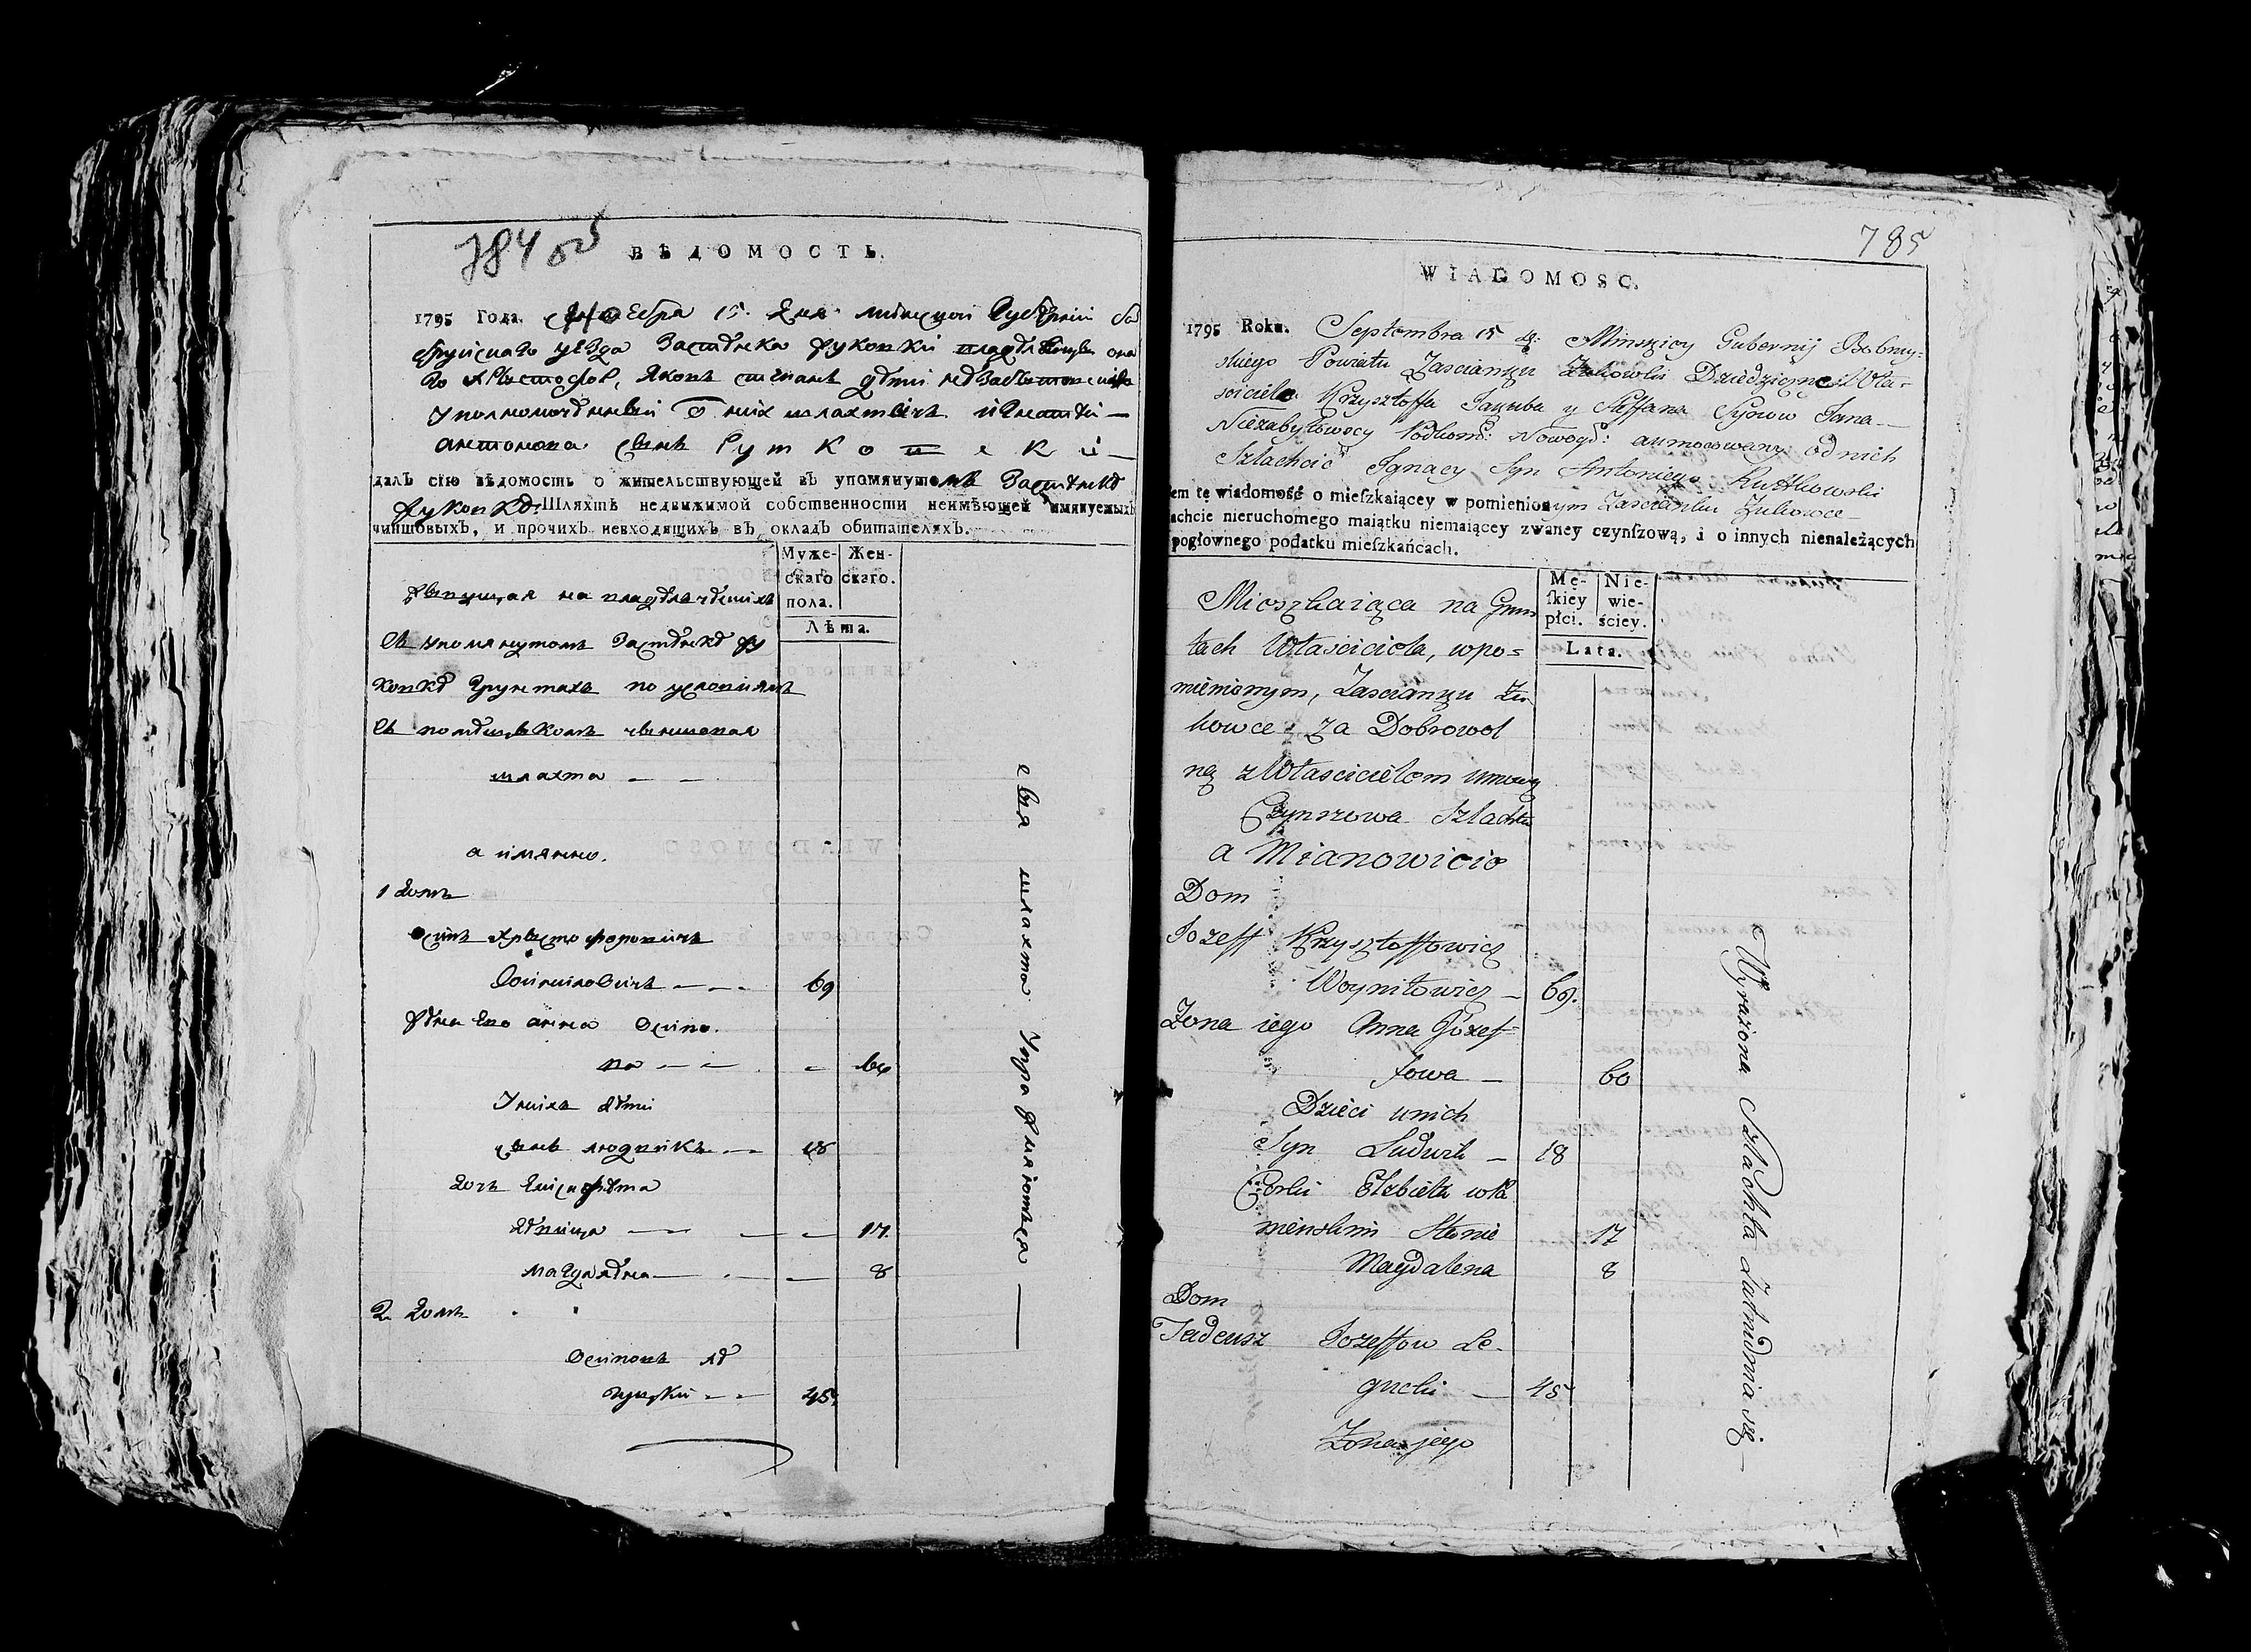 784 об
ВѢДОМОСТЬ.
1795 Года. 15. дня минской Губернии Бо
бруйскаго уезда Застенка Жуковки владельцов она
го Христофор, Яковъ стефанъ дети
уполномоченный от них шляхтичь игнатий
антонова сынъ Рутковский
далъ сїю вѣдомость о жительствующей въ упомянутомъ Застенке
Жуковке Шляхтѣ недвижимой собственности неимѣющей имянуемыхъ
чиншовыхъ, и прочихъ невходящихъ въ окладъ обитателяхъ.
Муже-скаго пола. Жен-скаго.
Лѣта.
живущая на владелческихъ
въ упомянутомъ Застенке Жу
ковке грунтахъ по условиямъ
въ помещикомъ чиншовая
шляхта
а имянно.
1 домъ
осипъ Христофоровичъ
Войниловичъ 69
жена Его анна Осипо
ва 60
У нихъ дети
сынъ людвикъ 18
дочь Елисавета
девица 17
магдалена 8
2 домъ
Осиповъ Ле
гуцкий 45
сия шляхта упражняется
785
WIADOMOSC.
1795 Roku. Septembra 15 d: Minskiey Gubernij Bobruy-
skiego Powiatu Zascianku Zukowki Dziedziczne Wła-
sciciele Krzysztoffa Jakuba y Steffana Synow Jana
Niezabytowscy Podkom: Nowogd: aumocowany od nich
Szlachcic Ignacy Syn Antoniego Rutkowski
em tę wiadomość o mieſzkaiącey w pomienionym Zascianku Zukowce
achcie nieruchomego maiątku niemaiącey zwaney czynſzową, i o innych nienależących
pogłownego podatku mieſzkańcach.
Mę-ſkiey płci. Nie-wie-ściey.
Lata.
Mieszkaiąca na Grun
tach Własciciela, wpo=
mienionym, Zascianku Zu
kowce za Dobrowol
ną z Własciciełem umową
Czynszowa Szlachta
a Mianowicie
Dom
Iozeff Krzysztoffowicz
Woyniłowicz 69.
Zona iego Anna Józef=
fowa 60
Dzieci unich
Syn Ludwik 18
Corki Elzbieta wPa
mienskim Stanie 17
Magdalena 8
Dom
Tadeusz Iozeffow Le-
gucki 45
Zona jego
Wyrażona Szlachta Zatrudnia się